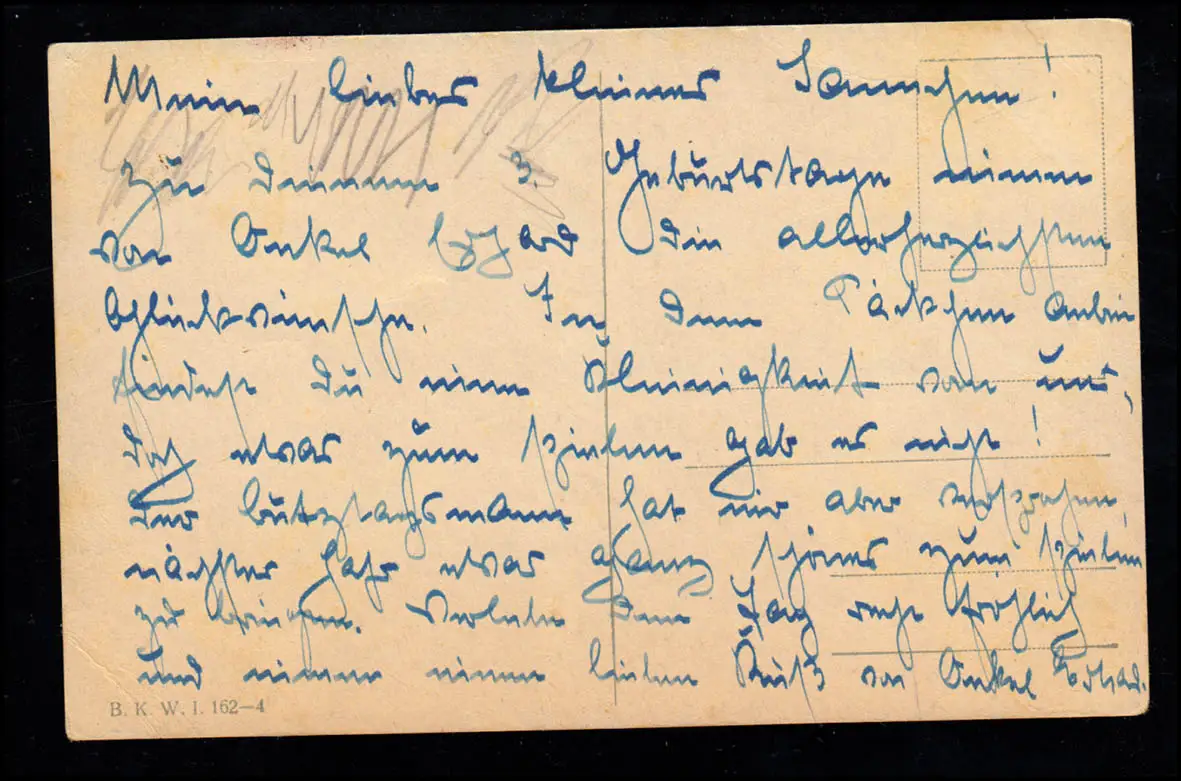 Mein liebes kleines
Zu deinem 3. Geburtstage nimm
von Onkel die allerherzlichsten
Glückwünsche. In dem Päckchen anbei
findest Du eine Kleinigkeit von uns,
doch etwas zum spielen gab es nicht!
Der hat mir aber versprochen,
nächstes Jahr etwas ganz schönes zum spielen
zu bringen. Verlebe den Tag recht fröhlich
und nimm einen lieben Kuß von Onkel
B. K. W. I. 162–4